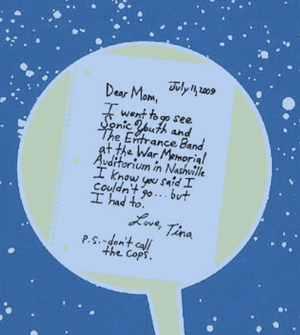 July 11, 2009
Dear Mom,
I went to go see
Sonic Youth and
The Entrance Band
at the War Memorial
Auditorium in Nashville
I know you said I
couldn't go... but
I had to.
Love, Tina
P.S.-don't call
the cops.